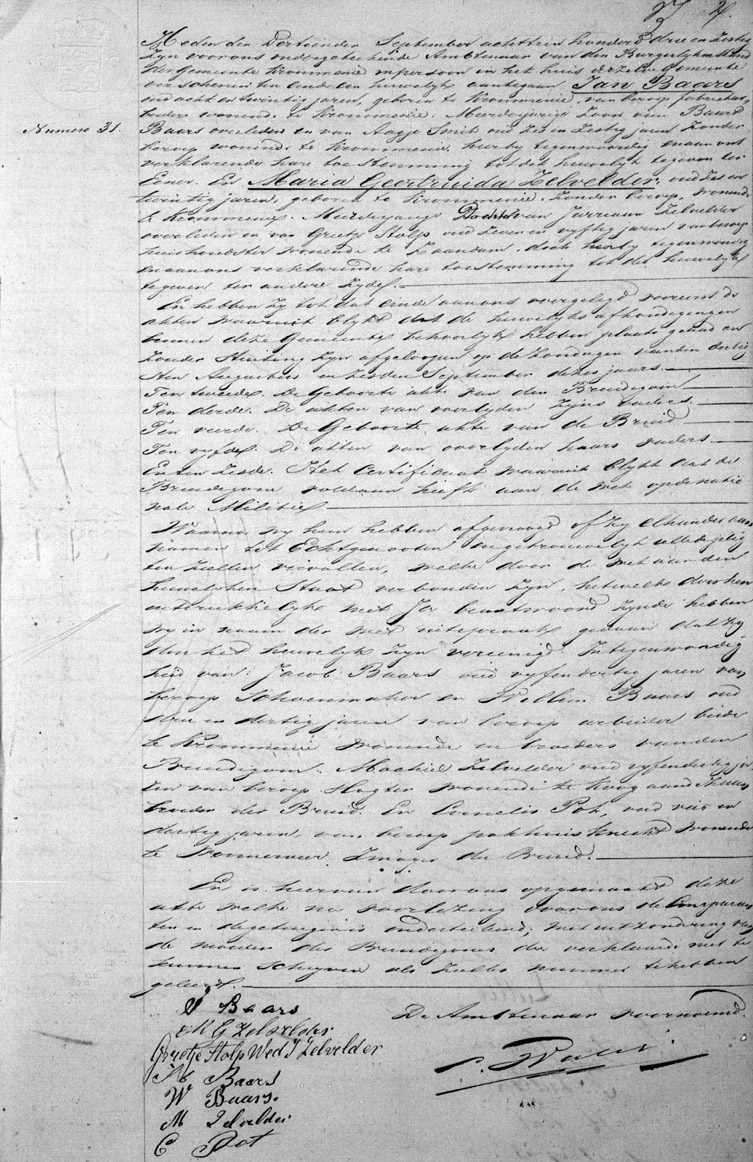 Heden den Dertienden September achttien honderd drie en zestig
zyn voor ons ondergeteekende Ambtenaar van den Burgerlyken Stand
der Gemeente Krommenie in persoon in het huis der zelve Gemeente
verschenen ten einde een huwelyk aantegaan, Jan Baars
oud acht en twintig jaren, geboren te Krommenie, van beroep fabriekar
beider wonende te Krommenie. Meerderjarige Zoon van Baard
Numero 31.
Baars overleden en van Aagje Smit oud zes en zestig jaren zonder
beroep wonende te Krommenie, hierby tegenwoordig en aan ons
verklarende hare toestemming tot dit huwelyk te geven ter
Eener. En Maria Geertruida Zelvelder, oud zes en
twintig jaren, geboren te Krommenie, zonder beroep, wonende
te Krommenie, Meerderjarige Dochter van Jurriaan Zelvelder
overleden en van Grietje Stolp oud zeven en vyftig jaren van beroep
huishoudster wonende te Zaandam, ook hierby tegenwoordig
en aan ons verklarende hare toestemming tot dit huwelyk
te geven ter andere Zyde.
En hebben zy tot dat einde aan ons overgelegd vooreerst de
akten waaruit blykt dat de huwelyks afkondigingen
binnen deze Gemeente behoorlyk hebben plaats gehad en
zonder stuiting zyn afgeloopen op de zondagen van den dertig
sten Augustus en zesden September dezes jaars.
Ten tweede. De Geboorte akte van den Bruidegom
Ten derde. De akten van overlyden zyns vaders.
Ten vierde. De Geboorte akte van de Bruid
Ten vyfde. De akten van overlyden haars vaders
En ten zesde. Het Certificaat waaruit blykt dat de
Bruidegom voldaan heeft aan de wet op de natio
nale Militie.
Waarna wy hen hebben afgevraagd of zy elkander aan
namen tot Echtgenooten en getrouwelyk alle de pligten
zullen vervullen, welke door de wet aan den
huwelyken Staat verbonden zyn, hetwelk door hen
uitdrukkelyk met Ja beantwoord zynde hebben
wy in naam der wet uitspraak gedaan dat zy
door het huwelyk zyn vereenigd. In tegenwoordig
heid van Jacob Baars oud vyfendertig jaren van
beroep Schoenmaker en Willem Baars oud
drie en dertig jaren van beroep arbeider beide
te Krommenie wonende en broeders van den
Bruidegom. Machiel Zelvelder oud vyfendertig ja
ren van beroep wonende te Koog aan de Zaan
broeder der Bruid. En Cornelis Pot, oud
dertig jaren, van beroep pakhuisknecht wonende
te Wormerveer, Zwager der Bruid.
En is hiervan door ons opgemaakt deze
akte welke na voorlezing door ons de Comparan
ten en de getuigen is onderteekend, met uitzondering van
de moeder des Bruidegoms die verklaarde niet te
kunnen schryven als zulks nimmer te hebben
geleerd.
J Baars
De Ambtenaar voornoemd.
M G Zelvelder
Grietje Stolp Wed J Zelvelder
Baars
W Baars.
M Zelvelder
C Pot